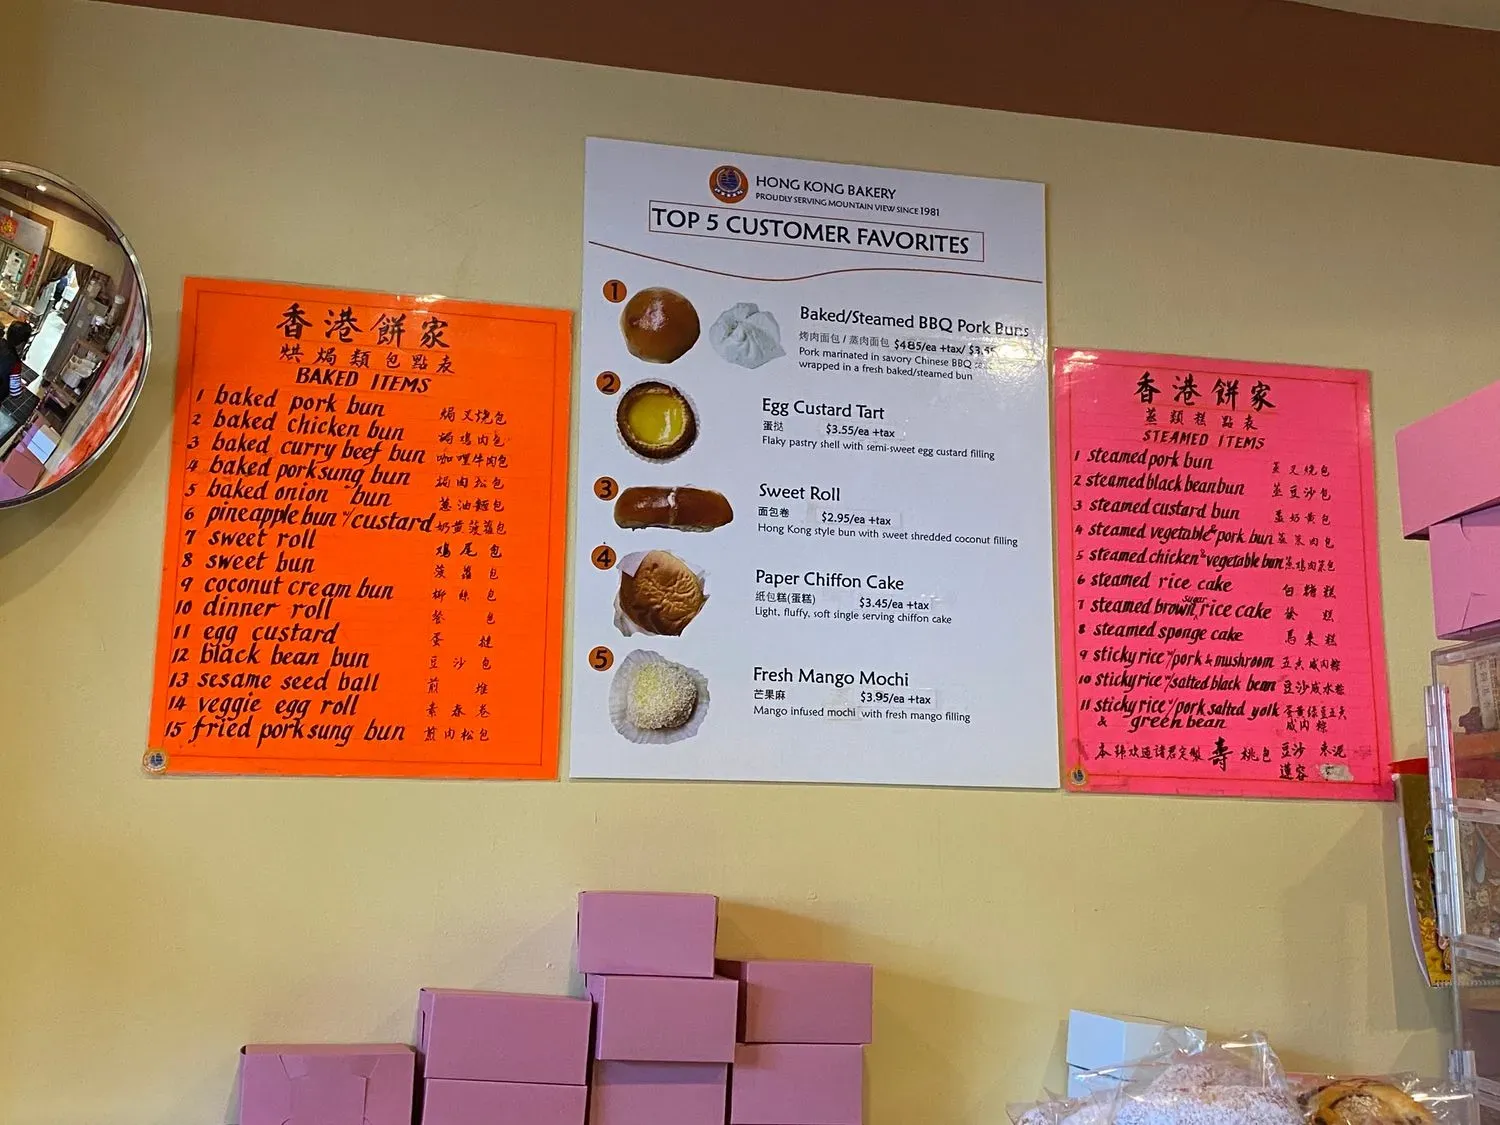 香港餅家
烘焗類包點表
BAKED ITEMS
1 baked pork bun 焗叉燒包
2 baked chicken bun 焗鷄肉包
3 baked curry beef bun 咖哩牛肉包
4 baked porksung bun 焗肉松包
5 baked onion bun 蔥油麵包
6 pineapple bun w/custard 奶黃菠蘿包
7 sweet roll 鷄尾包
8 sweet bun 菠蘿包
9 coconut cream bun 椰絲包
10 dinner roll 餐包
11 egg custard 蛋撻
12 black bean bun 豆沙包
13 sesame seed ball 煎堆
14 veggie egg roll 素春卷
15 fried porksung bun 煎肉松包
HONG KONG BAKERY
PROUDLY SERVING MOUNTAIN VIEW SINCE 1981
TOP 5 CUSTOMER FAVORITES
1
Baked/Steamed BBQ Pork Buns
烤肉面包 / 蒸肉面包 $4.85/ea +tax/
Pork marinated in savory Chinese BBQ
wrapped in a fresh baked/steamed bun
2
Egg Custard Tart
蛋挞 $3.55/ea +tax
Flaky pastry shell with semi-sweet egg custard filling
3
Sweet Roll
面包卷 $2.95/ea +tax
Hong Kong style bun with sweet shredded coconut filling
4
Paper Chiffon Cake
紙包糕(蛋糕) $3.45/ea +tax
Light, fluffy, soft single serving chiffon cake
5
Fresh Mango Mochi
芒果麻 $3.95/ea +tax
Mango infused mochi with fresh mango filling
香港餅家
蒸類糕點表
STEAMED ITEMS
1 steamed pork bun 蒸叉燒包
2 steamed black bean bun 蒸豆沙包
3 steamed custard bun 蒸奶黃包
4 steamed vegetable & pork bun 蒸菜肉包
5 steamed chicken & vegetable bun 蒸鷄肉菜包
6 steamed rice cake 白糖糕
7 steamed brown sugar rice cake 鬆糕
8 steamed sponge cake 馬來糕
9 sticky rice w/pork & mushroom 五香咸肉粽
10 sticky rice w/salted black bean 豆沙咸水粽
11 sticky rice w/pork salted yolk 蛋黃绿豆五香
& green bean 咸肉粽
本餅欢迎諸君定製 壽桃包 豆沙 枣泥
蓮容